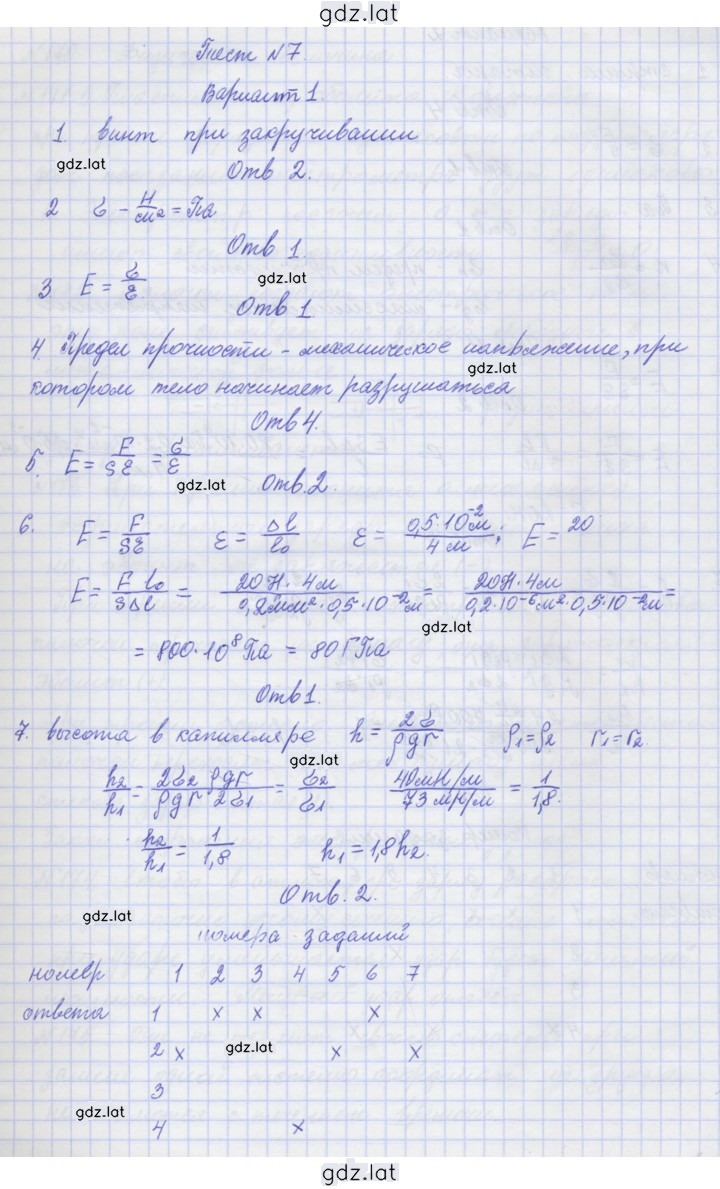 gdz.lat
Тест №7.
Вариант 1.
1. винт при закручивании
gdz.lat
Отв 2.
2 σ - Н/м² = Па
Отв 1.
gdz.lat
3 E = σ/ε
Отв 1
4. Предел прочности - механическое напряжение, при
gdz.lat
котором тело начинает разрушаться
Отв 4.
5. E = F/Sε = σ/ε
gdz.lat
Отв. 2
6. E = F/Sε ε = Δl/l₀ ε = 0,5·10⁻²м/4 м; E = 20
E = F l₀/SΔl = 20Н·4м/0,2мм²·0,5·10⁻²м = 20Н·4м/0,2·10⁻⁶м²·0,5·10⁻²м =
gdz.lat
= 800·10⁸Па = 80ГПа
Отв 1.
7. высота в капилляре h = 2σ/ρgr ρ₁=ρ₂ r₁=r₂
gdz.lat
h₂/h₁ = 2σ₂ ρgr/ρgr 2σ₁ = σ₂/σ₁ 40мН/м/73 мН/м = 1/1,8.
h₂/h₁ = 1/1,8 h₁ = 1,8h₂.
Отв. 2.
gdz.lat
номера заданий
номер 1 2 3 4 5 6 7
ответа 1 x x x
2 x x x
gdz.lat
3
gdz.lat
4 x
gdz.lat